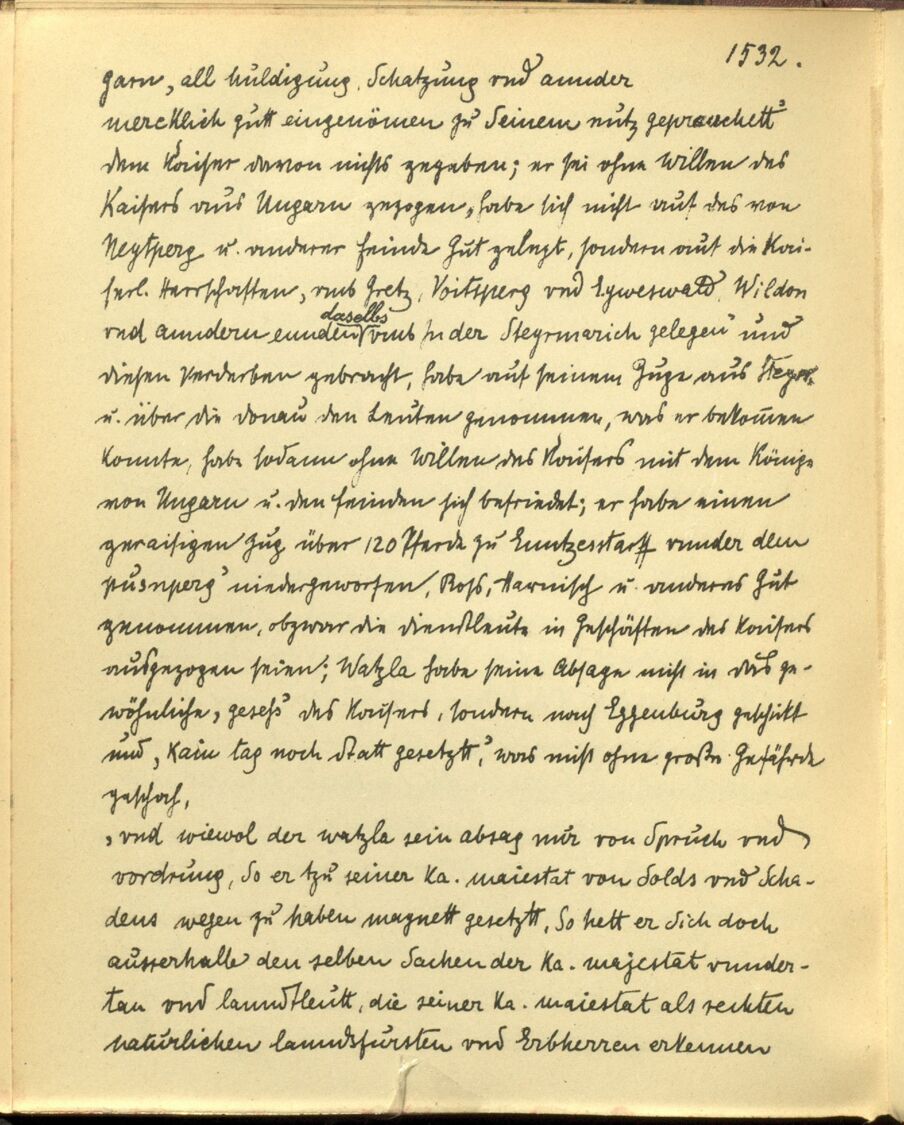 1532.
garn, all huldigung, Schatzung vnd annder
mercklich gutt eingenōmen zu Seinem nutz geprauchett"
dem Kaiser davon nichts gegeben; er sei ohne Willen des
Kaisers aus Ungarn gezogen, habe sich nicht auf des von
Neytperg u. anderer Feinde Gut gelegt, sondern auf die Kai-
serl. Herrschaften, „vmb Gretz, Voitsperg vnd Lyweswald, Wildon
vnd anndern ennden daselbs vmb In der Steyrmarich gelegen" und
diesen Verderben gebracht, habe auf seinem Zuge aus Steyer
u. über die Donau den Leuten genommen, was er bekom̄en
konnte, habe sodann ohne Willen des Kaisers mit dem Könige
von Ungarn u. den Feinden sich befriedet; er habe einen
geraisigen Zug über 120 Pferde zu Enntzesstorff vnnder dem
pusnperg" niedergeworfen, Roß, Harnisch u. anderes Gut
genommen, obzwar die Dienstleute in Geschäften des Kaisers
ausgezogen seien; Watzla habe seine Absage nicht in das ge-
wöhnliche „geseß" des Kaisers, sondern nach Eggenburg geschickt
und „kain tag noch statt gesetzt", was nicht ohne große Gefährde
geschah,
„vnd wiewol der watzla sein absag nur von Spruch vnd
vordrung, So er tzu seiner Ka. maiestat von Solds vnd Scha-
dens wegen zu haben magnett gesetzt, So hett er Sich doch
ausserhalb den selben Sachen der Ka. majestat vnnder-
tan vnd lanndtleutt, die seiner Ka. maiestat als rechten
naturlichen lanndsfursten vnd Erbherren erkennen